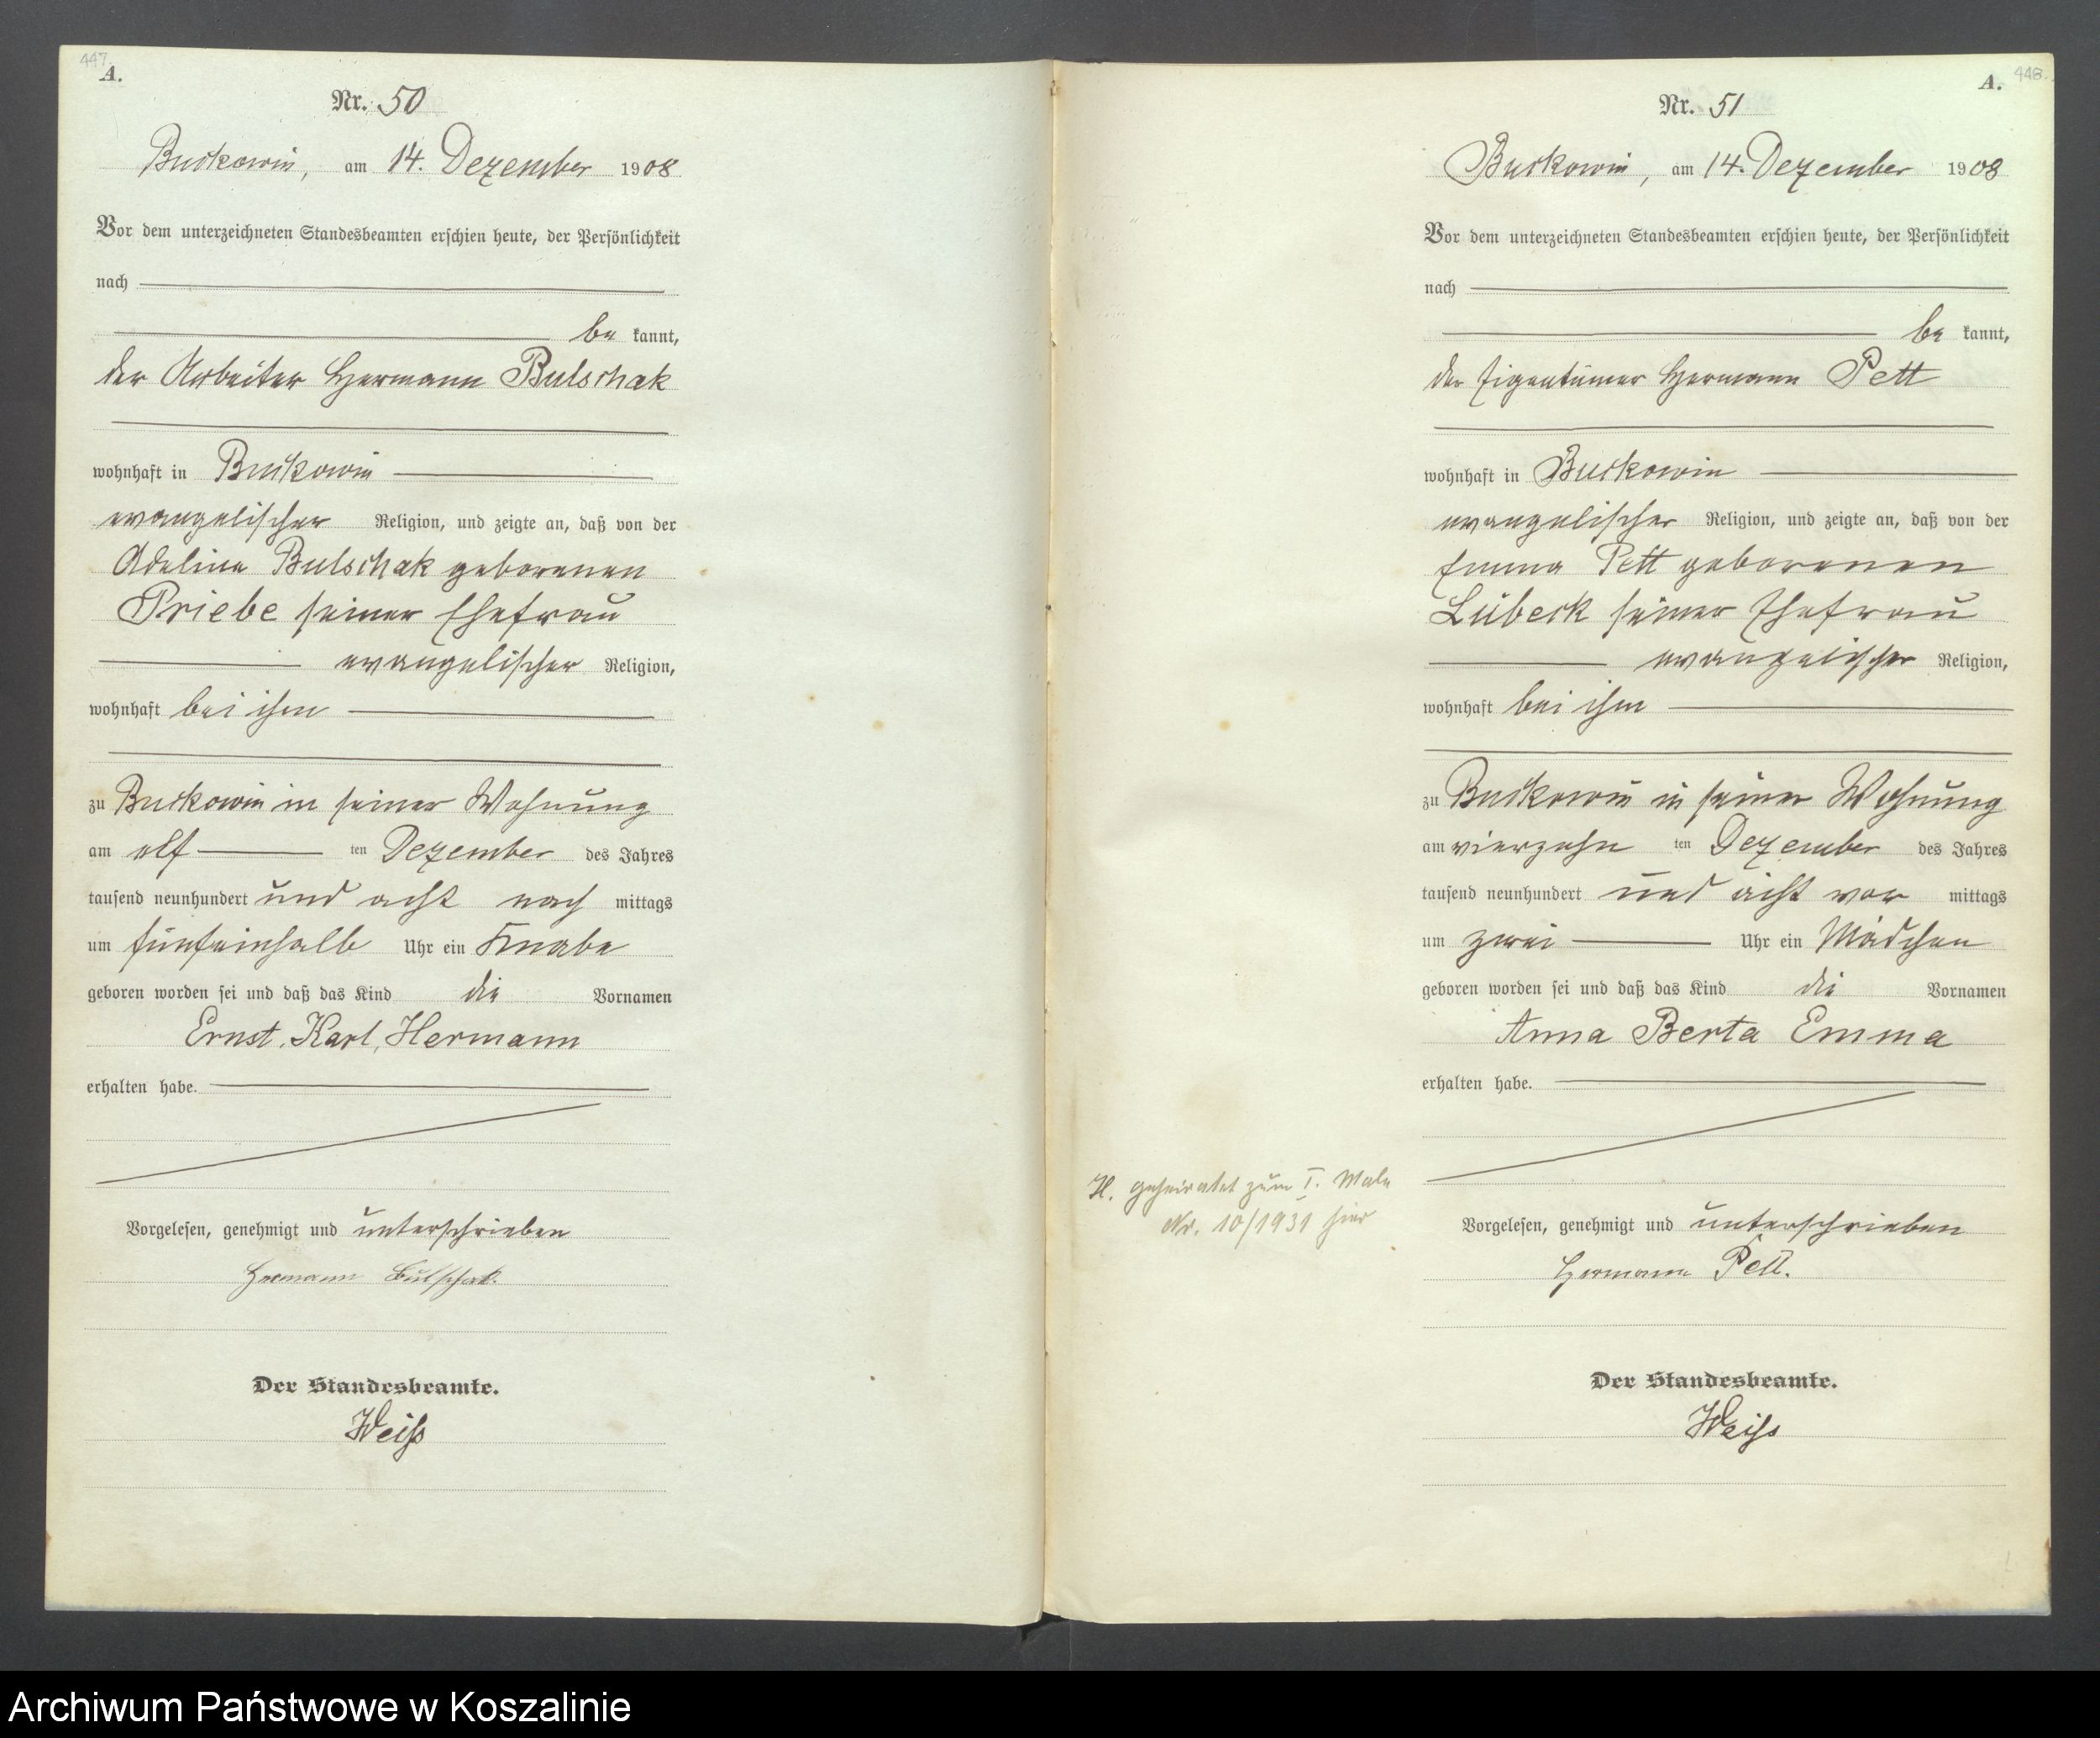 447.
A.
Nr. 50
Buckowin, am 14. Dezember 1908
Vor dem unterzeichneten Standesbeamten erschien heute, der Persönlichkeit
nach
be kannt,
der Arbeiter Hermann Bulschak
wohnhaft in Buckowin
evangelischer Religion, und zeigte an, daß von der
Adeline Bulschak geborenen
Priebe seiner Ehefrau
evangelischer Religion,
wohnhaft bei ihm
zu Buckowin in seiner Wohnung
am elf ten Dezember des Jahres
tausend neunhundert und acht nach mittags
um fünfeinhalb Uhr ein Knabe
geboren worden sei und daß das Kind die Vornamen
Ernst, Karl, Hermann
erhalten habe.
Vorgelesen, genehmigt und unterschrieben
Hermann Bulschak.
Der Standesbeamte.
Weiß
448.
A.
Nr. 51
Buckowin, am 14. Dezember 1908
Vor dem unterzeichneten Standesbeamten erschien heute, der Persönlichkeit
nach
be kannt,
der Eigentümer Hermann Pett
wohnhaft in Buckowin
evangelischer Religion, und zeigte an, daß von der
Emma Pett geborenen
Lübeck seiner Ehefrau
evangelischer Religion,
wohnhaft bei ihm
zu Buckowin in seiner Wohnung
am vierzehn ten Dezember des Jahres
tausend neunhundert und acht vor mittags
um zwei Uhr ein Mädchen
geboren worden sei und daß das Kind die Vornamen
Anna Berta Emma
erhalten habe.
H. geheiratet zum I. Male
Nr. 10/1931 hier
Vorgelesen, genehmigt und unterschrieben
Hermann Pett.
Der Standesbeamte.
Weiß
Archiwum Państwowe w Koszalinie